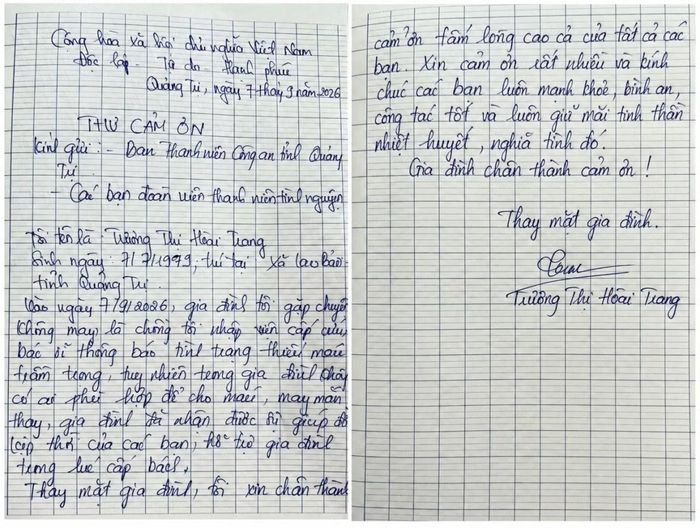 Cộng hòa xã hội chủ nghĩa Việt Nam
Độc lập - Tự do - Hạnh phúc
Quảng Trị, ngày 7 tháng 9 năm 2026
THƯ CẢM ƠN
Kính gửi: - Đoàn Thanh niên Công an tỉnh Quảng
Trị
- Các bạn đoàn viên thanh niên tình nguyện
Tôi tên là: Trương Thị Hoài Trang
Sinh ngày: 7/7/1979, trú tại xã Lao Bảo -
tỉnh Quảng Trị.
Vào ngày 7/9/2026, gia đình tôi gặp chuyện
không may là chồng tôi nhập viện cấp cứu,
bác sĩ thông báo tình trạng thiếu máu
trầm trọng, tuy nhiên trong gia đình không
có ai phù hợp để cho máu, may mắn
thay, gia đình đã nhận được sự giúp đỡ
kịp thời của các bạn, hỗ trợ gia đình
trong lúc cấp bách.
Thay mặt gia đình, tôi xin chân thành
cảm ơn tấm lòng cao cả của tất cả các
bạn. Xin cảm ơn rất nhiều và kính
chúc các bạn luôn mạnh khoẻ, bình an,
công tác tốt và luôn giữ mãi tinh thần
nhiệt huyết, nghĩa tình đó.
Gia đình chân thành cảm ơn!
Thay mặt gia đình.
Trương Thị Hoài Trang